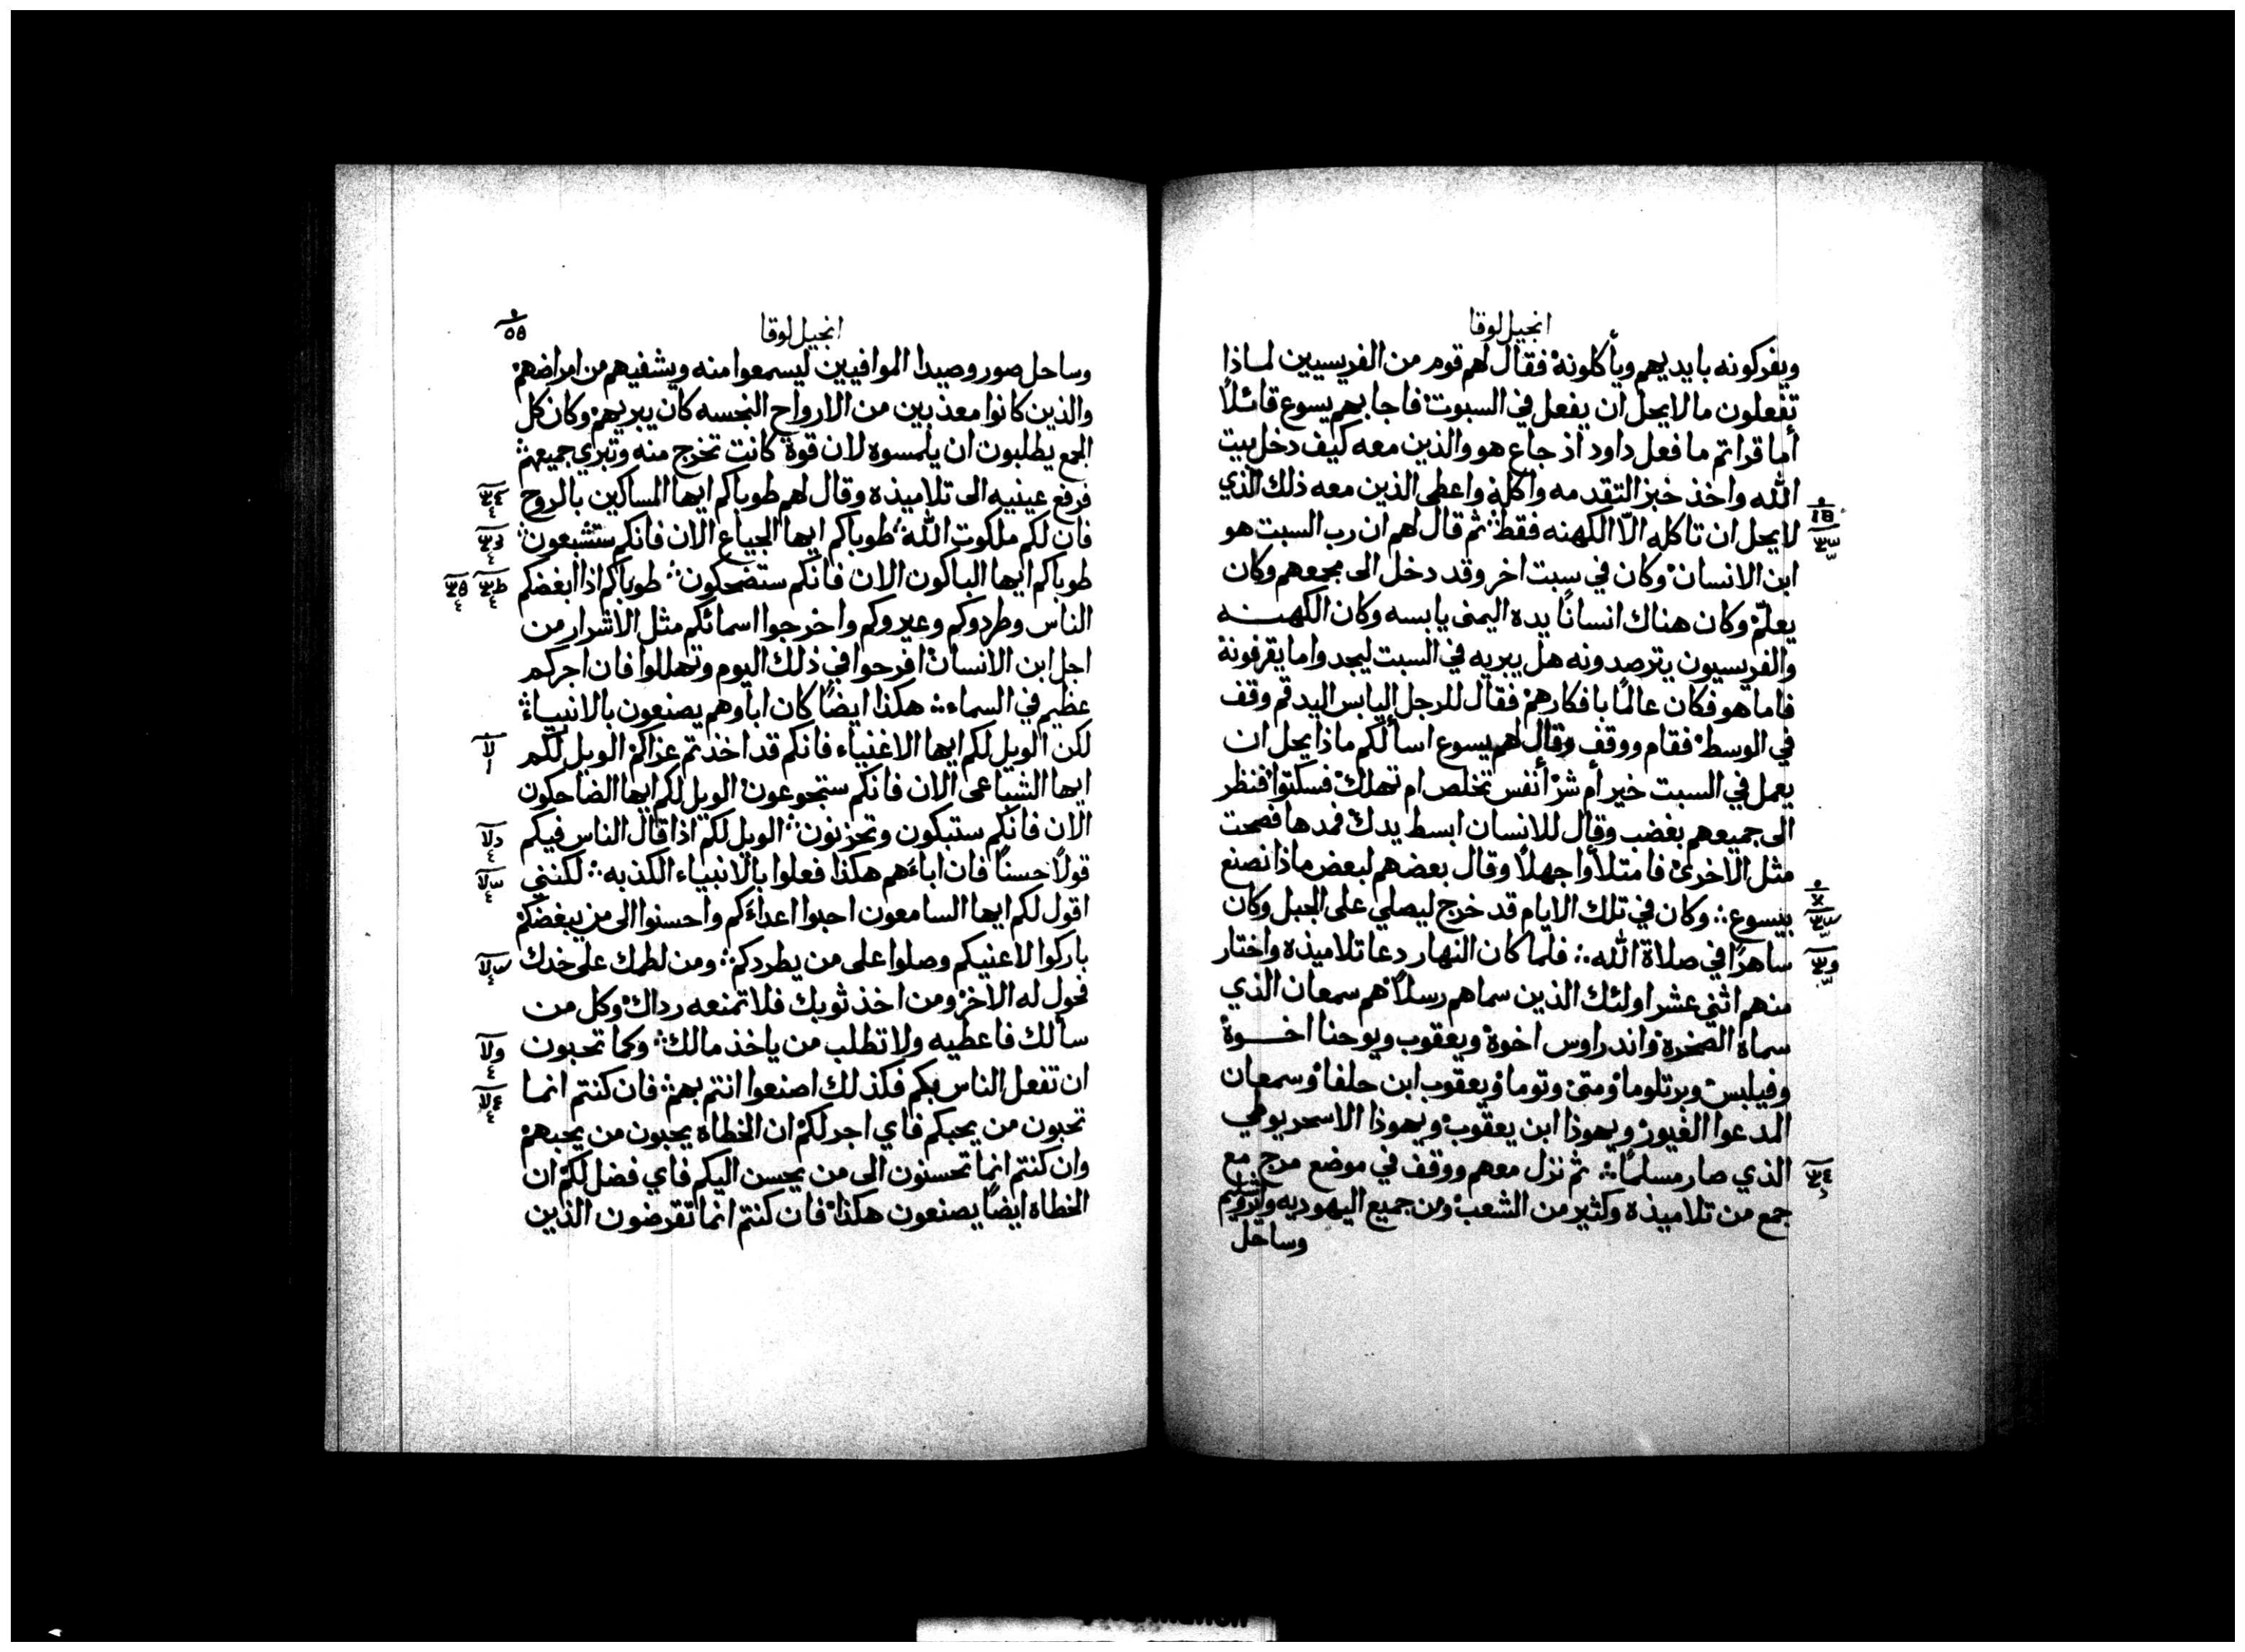 انجيل لوقا
ويفركونه بايديهم ويأكلونه فقال لهم قوم من الفريسيين لماذا
تفعلون ما لا يحل ان يفعل في السبوت فاجابهم يسوع قائلًا
اما قراتم ما فعل داود اذ جاع هو والذين معه كيف دخل بيت
الله واخذ خبز التقدمه واكله واعطى الذين معه ذلك الذي
لا يحل ان تاكله الّا الكهنه فقط ثم قال لهم ان رب السبت هو
ابن الانسان وكان في سبت اخر وقد دخل الى مجمعهم وكان
يعلّم وكان هناك انسانًا يده اليمنى يابسه وكان الكهنه
والفريسيون يترصدونه هل يبريه في السبت ليجدوا ما يقرفونه
فاما هو فكان عالمًا بافكارهم فقال للرجل اليابس اليد قم وقف
في الوسط فقام ووقف وقال لهم يسوع اسألكم ماذا يحل ان
يعمل في السبت خير أم شر أنفس تخلص ام تهلك فسكتوا فنظر
الى جميعهم بغضب وقال للانسان ابسط يدك فمدها فصحت
مثل الاخرى فامتلأوا جهلًا وقال بعضهم لبعض ماذا نصنع
بيسوع ∴ وكان في تلك الايام قد خرج ليصلي على الجبل وكان
ساهرًا في صلاة الله ∴ فلما كان النهار دعا تلاميذه واختار
منهم اثني عشر اولئك الذين سماهم رسلًا هم سمعان الذي
سماه الصخرة واندراوس اخوة ويعقوب ويوحنا اخوة
وفيلبس وبرتلوما ومتى وتوما ويعقوب ابن حلفا وسمعان
المدعوا الغيور ويهوذا ابن يعقوب ويهوذا الاسخريوطي
الذي صار مسلمًا ∴ ثم نزل معهم ووقف في موضع مرج مع
جمع من تلاميذه وكثير من الشعب ومن جميع اليهوديه واورشليم
وساحل
انجيل لوقا
٥٥
وساحل صور وصيدا الموافيين ليسمعوا منه ويشفيهم من امراضهم
والذين كانوا معذبين من الارواح النجسه كان يبريهم وكان كل
الجمع يطلبون ان يلمسوه لان قوة كانت تخرج منه وتبري جميعهم
فرفع عينيه الى تلاميذه وقال لهم طوباكم ايها المساكين بالروح
فان لكم ملكوت الله ∴ طوباكم ايها الجياع الان فانكم ستشبعون
طوباكم ايها الباكون الان فانكم ستضحكون ∴ طوباكم اذا ابغضكم
الناس وطردوكم وعيروكم واخرجوا اسمائكم مثل الاشرار من
اجل ابن الانسان افرحوا في ذلك اليوم وتهللوا فان اجركم
عظيم في السماء ∴ هكذا ايضًا كان اباوهم يصنعون بالانبياء
لكن الويل لكم ايها الاغنياء فانكم قد اخذتم عزاكم الويل لكم
ايها الشباعى الان فانكم ستجوعون الويل لكم ايها الضاحكون
الان فانكم ستبكون وتحزنون ∴ الويل لكم اذا قال الناس فيكم
قولًا حسنًا فان اباءهم هكذا فعلوا بالانبياء الكذبه ∴ لكنني
اقول لكم ايها السامعون احبوا اعداءكم واحسنوا الى من يبغضكم
باركوا لاعنيكم وصلوا على من يطردكم ∴ ومن لطمك على خدك
فحول له الاخر ومن اخذ ثوبك فلا تمنعه رداك وكل من
سألك فاعطيه ولا تطلب من ياخذ مالك ∴ وكما تحبون
ان تفعل الناس بكم فكذلك اصنعوا انتم بهم ∴ فان كنتم انما
تحبون من يحبكم فاي اجر لكم ان الخطاه يحبون من يحبهم
وان كنتم انما تحسنون الى من يحسن اليكم فاي فضل لكم ان
الخطاه ايضًا يصنعون هكذا فان كنتم انما تقرضون الذين